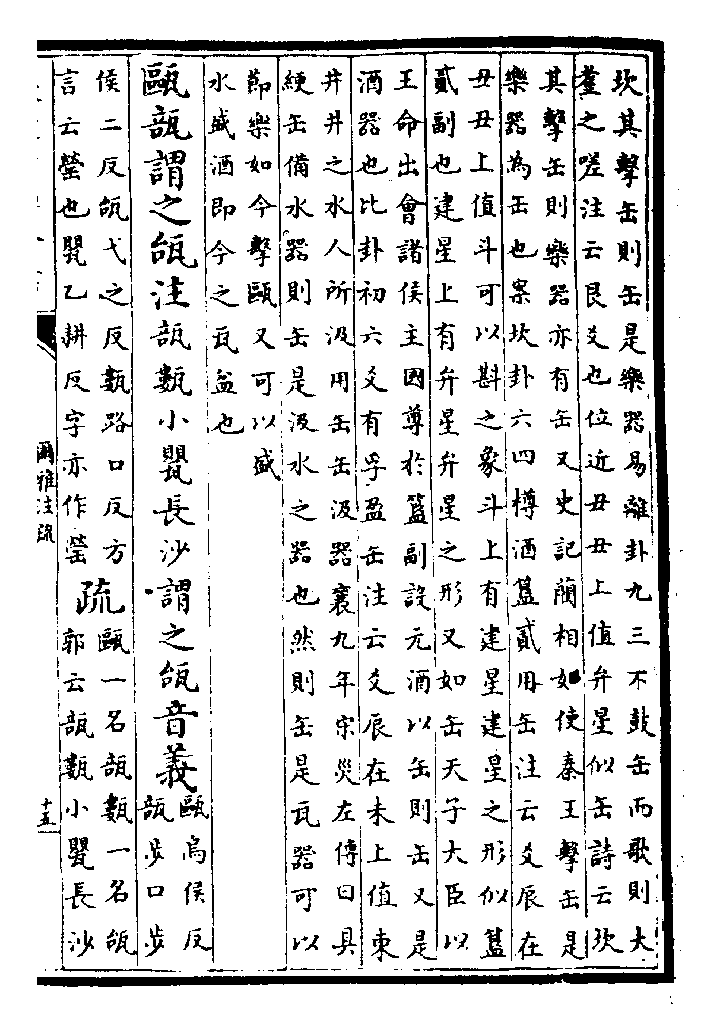 坎其擊缶則缶是樂器易離卦九三不鼓缶而歌則大
耋之嗟注云艮爻也位近丑丑上值弁星似缶詩云坎
其擊缶則樂器亦有缶又史記藺相如使秦王擊缶是
樂器為缶也案坎卦六四樽酒簋貳用缶注云爻辰在
丑丑上值斗可以斟之象斗上有建星建星之形似簋
貳副也建星上有弁星弁星之形又如缶天子大臣以
王命出會諸侯主國尊於簋副設元酒以缶則缶又是
酒器也比卦初六爻有孚盈缶注云爻辰在未上值東
井井之水人所汲用缶缶汲器襄九年宋災左傳曰具
綆缶備水器則缶是汲水之器也然則缶是瓦器可以
節樂如今擊甌又可以盛
水盛酒即今之瓦盆也
甌瓿謂之瓵注瓿甊小甖長沙謂之瓵音義
甌烏侯反
瓿步口步
侯二反瓵弋之反甊路口反方
言云罃也甖乙耕反字亦作罃
疏
甌一名瓿甊一名瓵
郭云瓿甊小甖長沙
爾雅注疏
十五